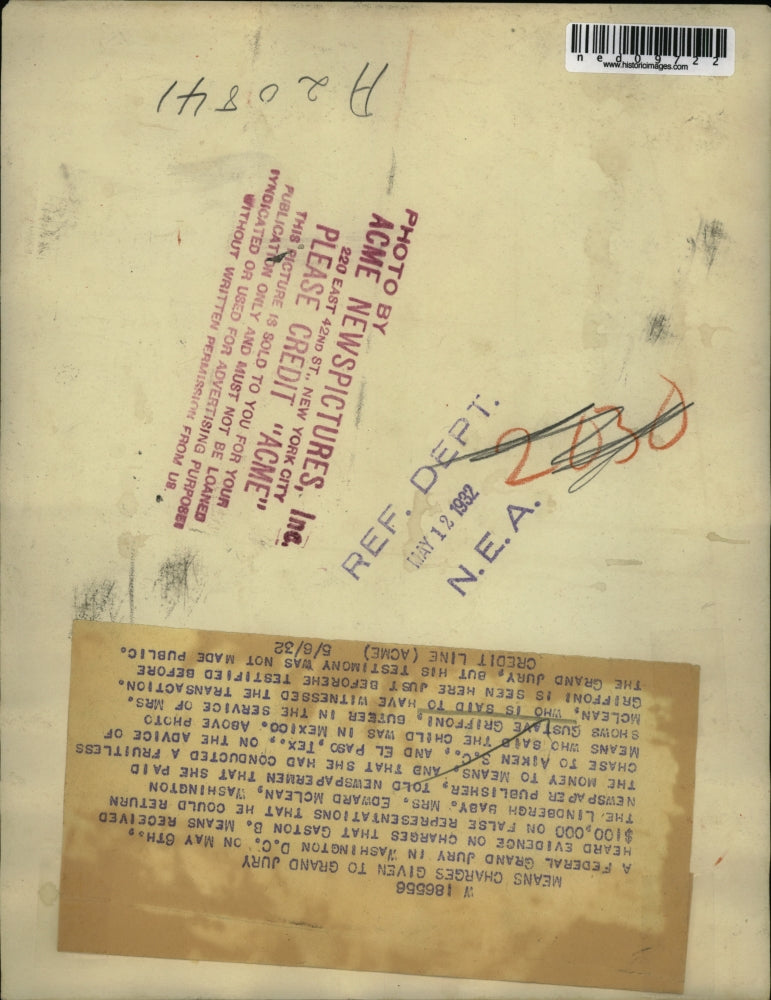 ned09722
www.historicimages.com
A20841
PHOTO BY
ACME NEWSPICTURES, Inc.
220 EAST 42ND ST., NEW YORK CITY
PLEASE CREDIT "ACME"
THIS PICTURE IS SOLD TO YOU FOR YOUR
PUBLICATION ONLY AND MUST NOT BE LOANED
SYNDICATED OR USED FOR ADVERTISING PURPOSES
WITHOUT WRITTEN PERMISSION FROM US.
2030
REF. DEPT.
MAY 12 1932
N. E. A.
W 186556
MEANS CHARGES GIVEN TO GRAND JURY
A FEDERAL GRAND JURY IN WASHINGTON D.C. ON MAY 6TH.,
HEARD EVIDENCE ON CHARGES THAT GASTON B. MEANS RECEIVED
$100,000 ON FALSE REPRESENTATIONS THAT HE COULD RETURN
THE LINDBERGH BABY. MRS. EDWARD MCLEAN, WASHINGTON
NEWSPAPER PUBLISHER, TOLD NEWSPAPERMEN THAT SHE PAID
THE MONEY TO MEANS, AND THAT SHE HAD CONDUCTED A FRUITLESS
CHASE TO AIKEN S.C., AND EL PASO, TEX., ON THE ADVICE OF
MEANS WHO SAID THE CHILD WAS IN MEXICO. ABOVE PHOTO
SHOWS GUSTAVE GRIFFONI, BUTLER IN THE SERVICE OF MRS.
MCLEAN, WHO IS SAID TO HAVE WITNESSED THE TRANSACTION.
GRIFFONI IS SEEN HERE JUST BEFOREHE TESTIFIED BEFORE
THE GRAND JURY, BUT HIS TESTIMONY WAS NOT MADE PUBLIC.
CREDIT LINE (ACME) 5/6/32